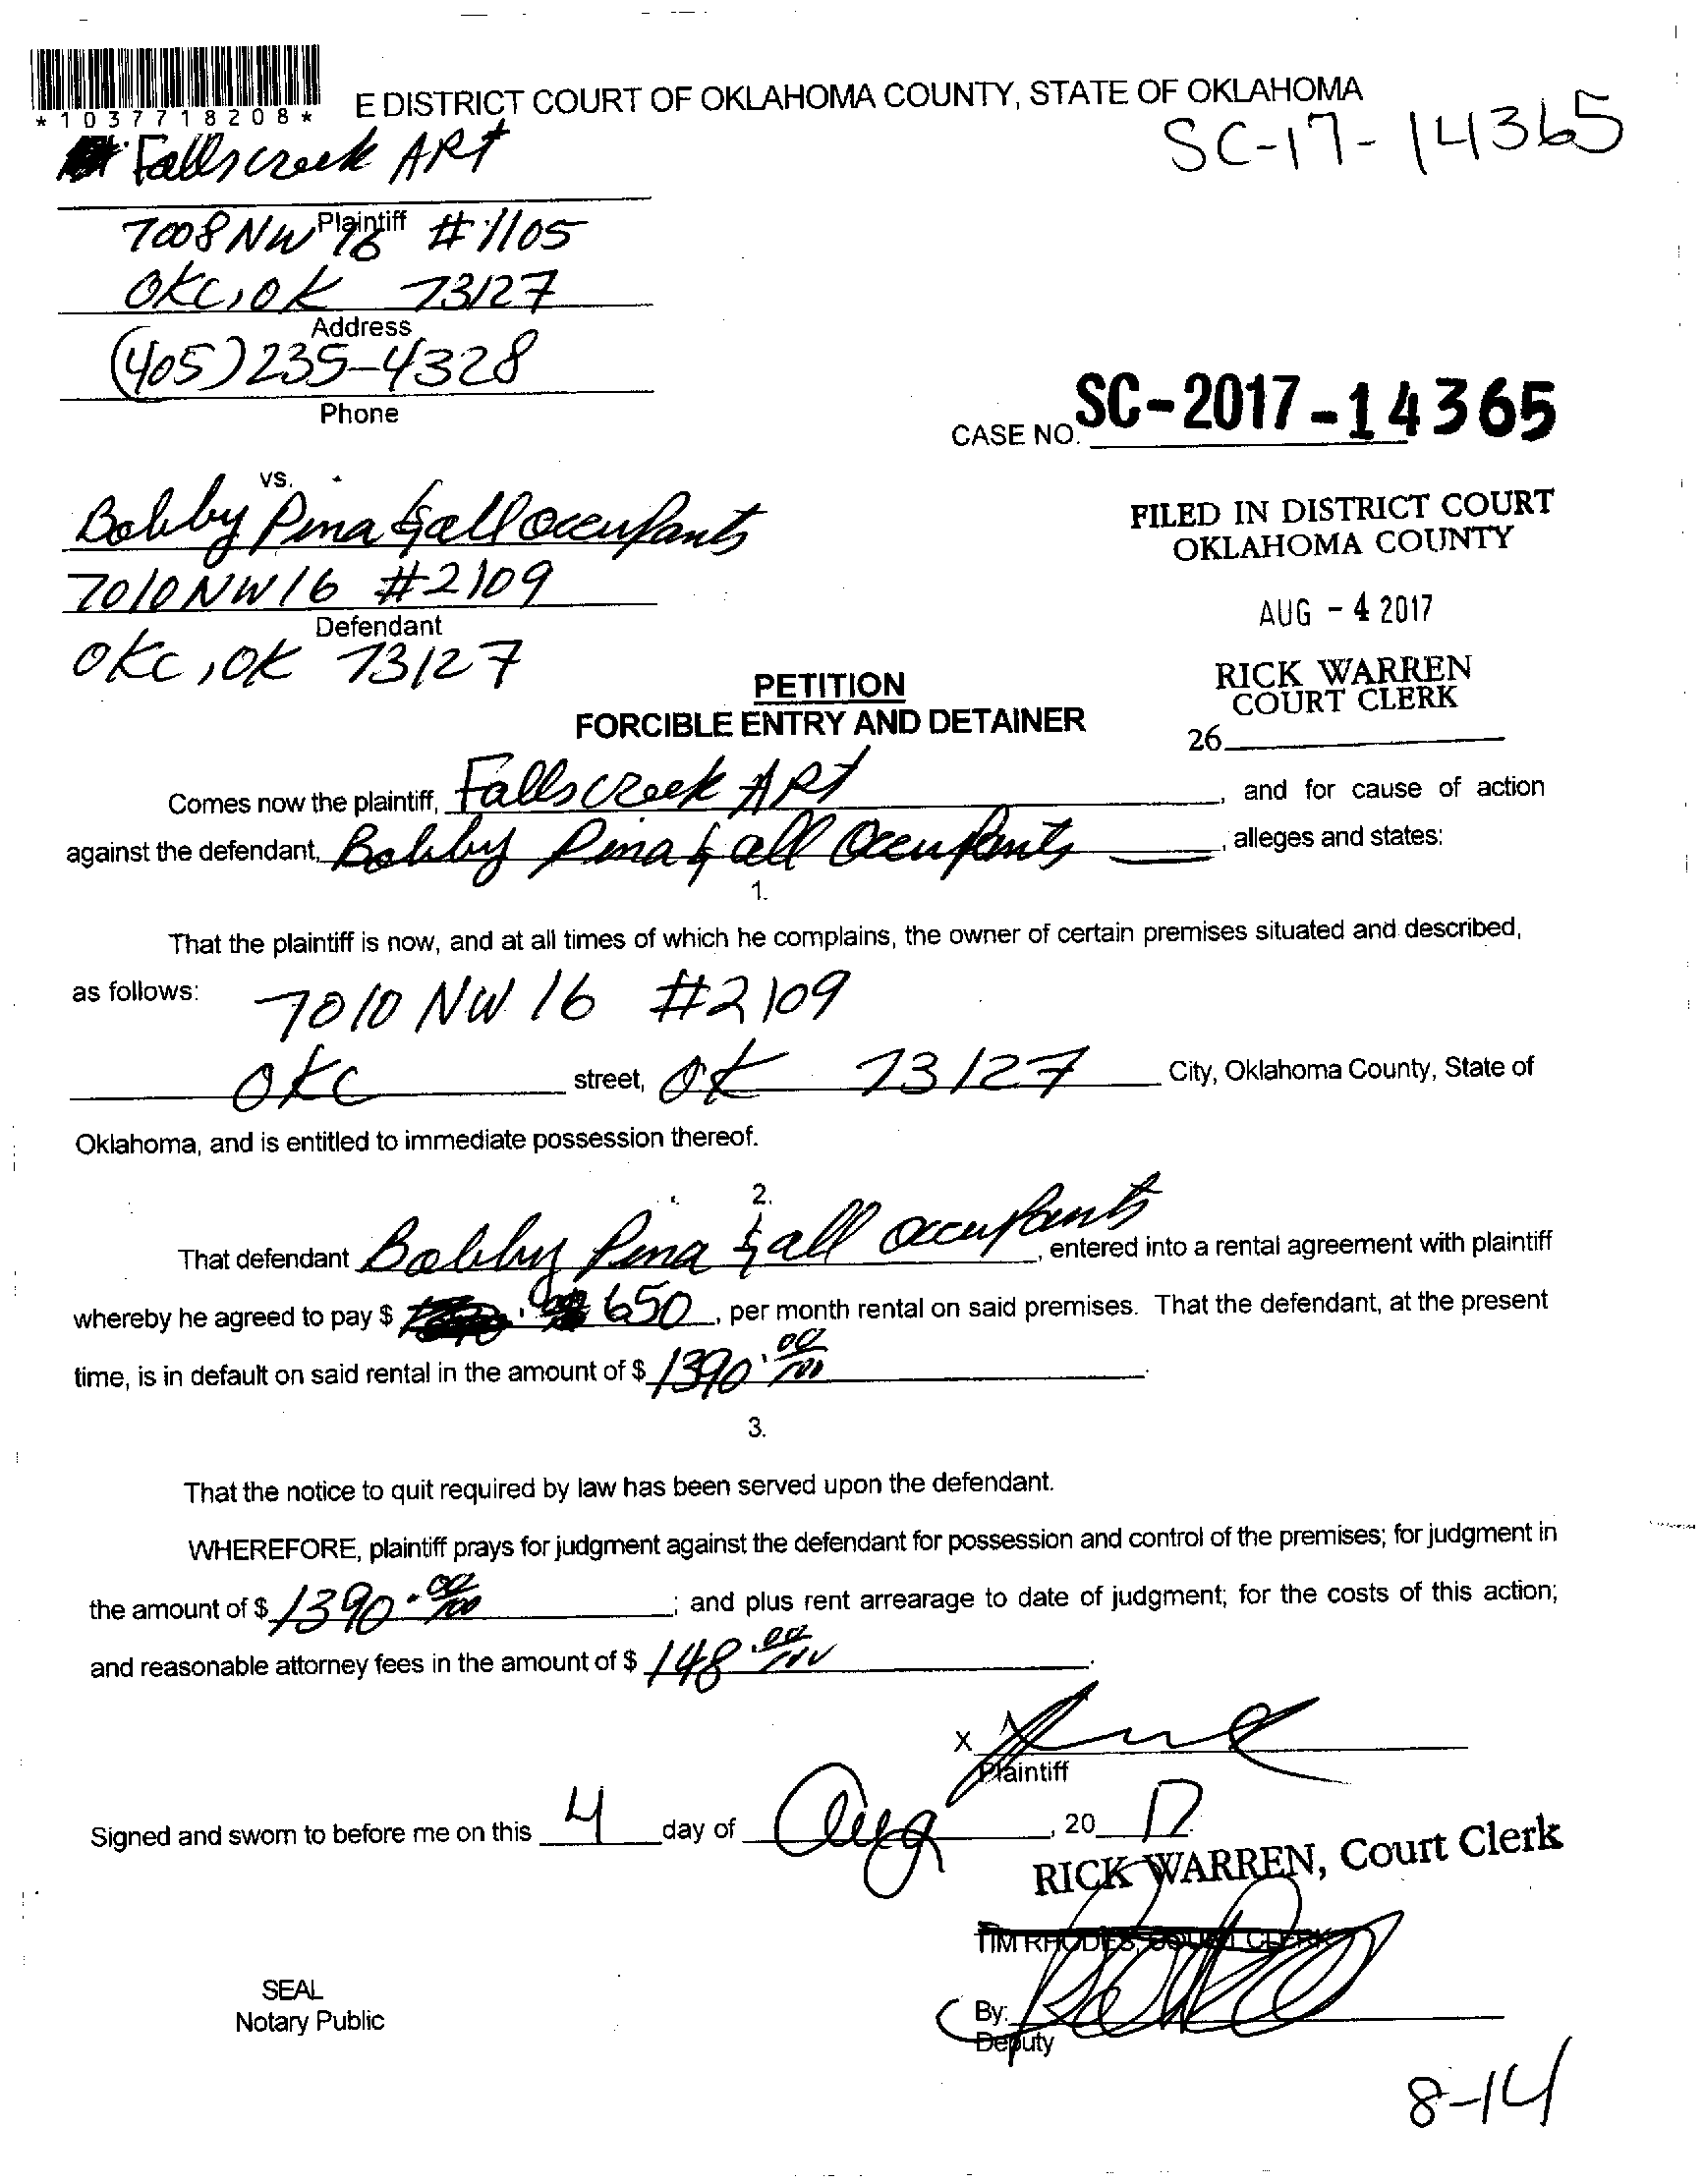 *1037718208*
E DISTRICT COURT OF OKLAHOMA COUNTY, STATE OF OKLAHOMA
SC-17-14365
Fallscreek APt
Plaintiff
7008 NW 16 #1105
OKC, OK 73127
Address
(405) 235-4328
Phone
CASE NO. SC-2017-14365
vs.
Bobby Pina & all occupants
7010 NW 16 #2109
Defendant
OKC, OK 73127
FILED IN DISTRICT COURT
OKLAHOMA COUNTY
AUG - 4 2017
RICK WARREN
COURT CLERK
26
PETITION
FORCIBLE ENTRY AND DETAINER
Comes now the plaintiff, Fallscreek APt, and for cause of action
against the defendant, Bobby Pina & all Occupants, alleges and states:
1.
That the plaintiff is now, and at all times of which he complains, the owner of certain premises situated and described,
as follows: 7010 NW 16 #2109
OKC street, OK 73127 City, Oklahoma County, State of
Oklahoma, and is entitled to immediate possession thereof.
2.
That defendant Bobby Pina & all occupants, entered into a rental agreement with plaintiff
whereby he agreed to pay $ 650, per month rental on said premises. That the defendant, at the present
time, is in default on said rental in the amount of $ 1390.00/100.
3.
That the notice to quit required by law has been served upon the defendant.
WHEREFORE, plaintiff prays for judgment against the defendant for possession and control of the premises; for judgment in
the amount of $ 1390.00/100; and plus rent arrearage to date of judgment; for the costs of this action;
and reasonable attorney fees in the amount of $ 148.00/100.
X
Plaintiff
Signed and sworn to before me on this 4 day of Aug, 20 17
RICK WARREN, Court Clerk
TIM RHODES, COURT CLERK
SEAL
Notary Public
By:
Deputy
8-14